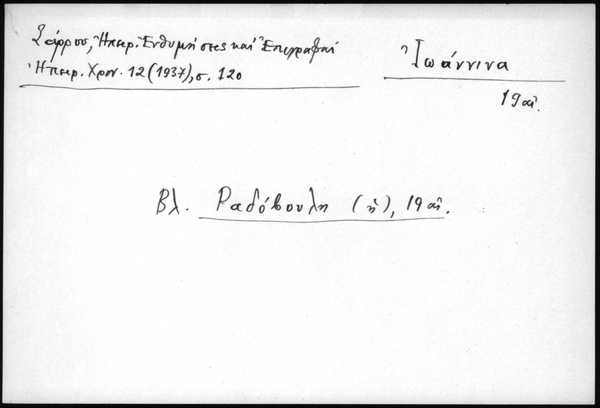 Σάρρου, Ἠπειρ. Ἐνθυμήσεις καὶ Ἐπιγραφαί
Ἠπειρ. Χρον. 12 (1937), σ. 120
Ἰωάννινα
19 αἰ.
Βλ. Ραδόβουλη (ἡ), 19 αἰ.